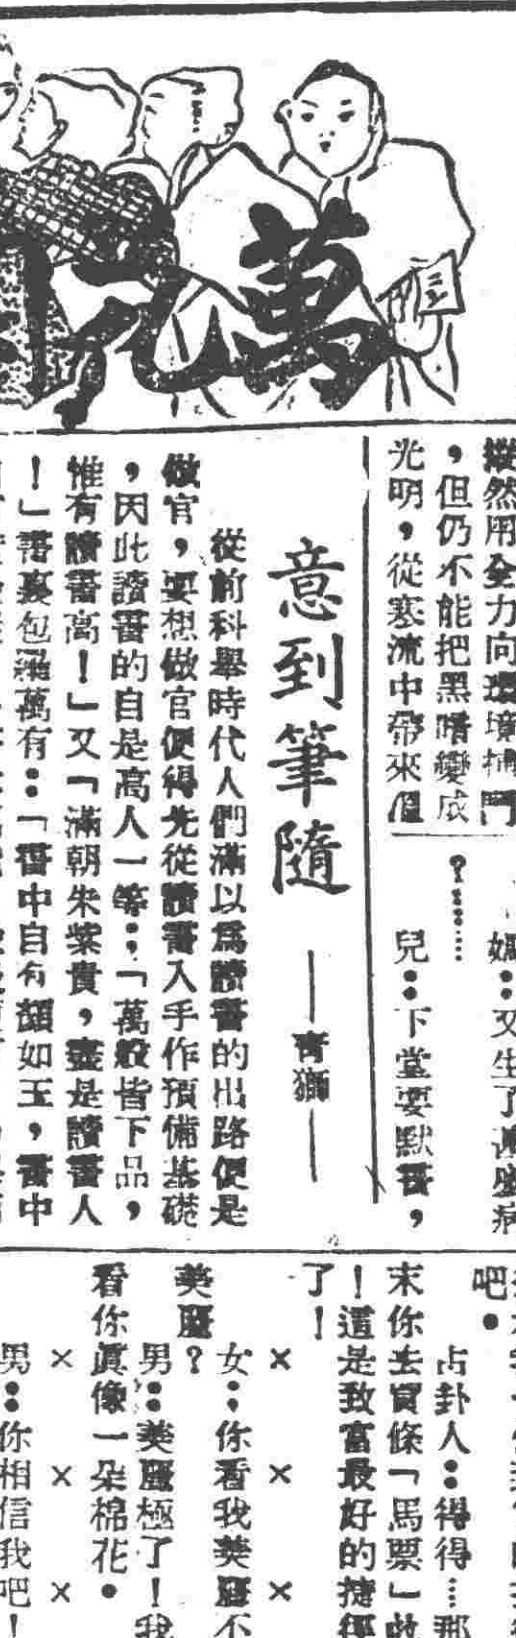 萬花
縱然用全力向環境搏鬥
，但仍不能把黑暗變成
光明，從寒流中帶來溫
媽：又生了甚麼病
？……
兒：下堂要默書，
意到筆隨
——青獅——
從前科舉時代人們滿以爲讀書的出路便是
做官，要想做官便得先從讀書入手作預備基礎
，因此讀書的自是高人一等；「萬般皆下品，
惟有讀書高！」又「滿朝朱紫貴，盡是讀書人
！」書裏包羅萬有：「書中自有顏如玉，書中
吧。
占卦人：得得…那
末你去買條「馬票」
！這是致富最好的捷徑
了！
×　×　×
女：你看我美麗不
美麗？
男：美麗極了！我
看你眞像一朵棉花。
×　×　×
男：你相信我吧！